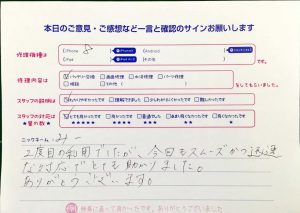 本日のご意見・ご感想など一言と確認のサインお願いします
修理機種は
iPhone 8
Android
iPad
その他
です。
修理内容は
バッテリー交換 画面修理 水没修理 パーツ修理
相談 その他（ ）
をしてもらいました。
スタッフの説明は
わかりやすかったです 理解できました 少しわかりにくかったです 難しかったです
スタッフの対応は
とても良かったです 良かったです 普通でした あまり良くなかったです 良くなかったです
★星の数★
★★★★★ ★★★★ ★★★ ★★ ★
ニックネーム：みー
2度目の利用でしたが、今回もスムーズかつ迅速
な対応でとても助かりました。
ありがとうございます。
検索に迷って良かったです、ありがとうございました